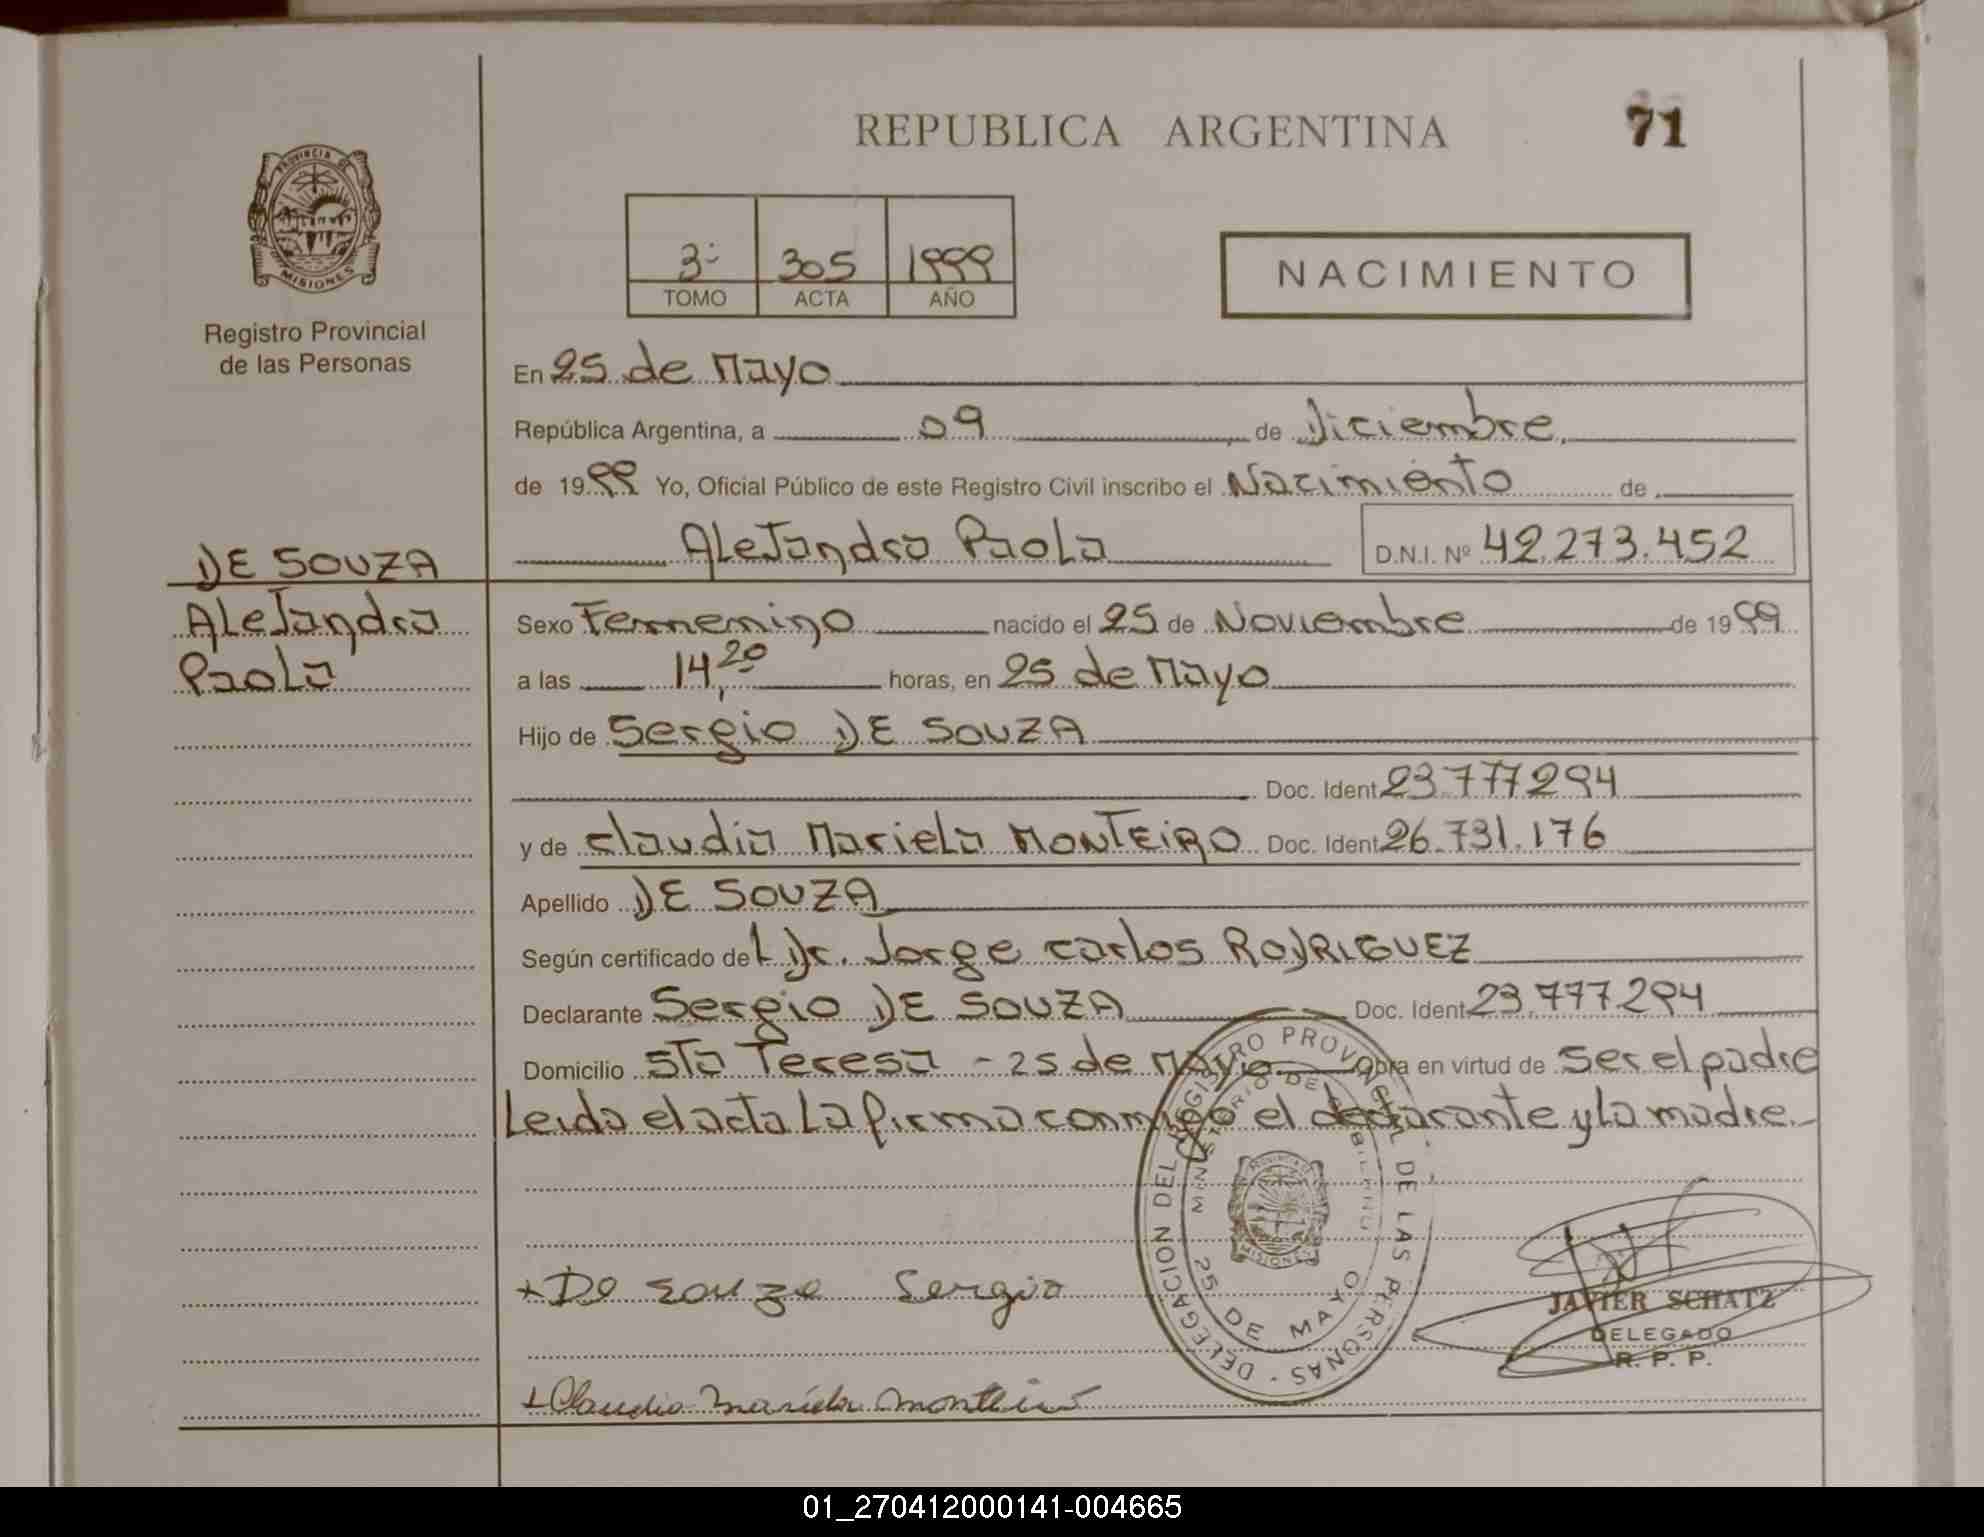 REPUBLICA ARGENTINA
71
PROVINCIA DE
MISIONES
Registro Provincial
de las Personas
3º 305 1999
TOMO ACTA AÑO
NACIMIENTO
En 25 de Mayo
República Argentina, a 09, de Diciembre,
de 1999 Yo, Oficial Público de este Registro Civil inscribo el Nacimiento de
Alejandra Paola D.N.I. Nº 42.273.452
DE SOUZA
Alejandra
Paola
Sexo Femenino nacido el 25 de Noviembre de 1999
a las 14,20 horas, en 25 de Mayo
Hijo de Sergio DE SOUZA
Doc. Ident 23.777.294
y de Claudia Mariela MONTEIRO Doc. Ident 26.731.176
Apellido DE SOUZA
Según certificado de Dr. Jorge Carlos RODRIGUEZ
Declarante Sergio DE SOUZA Doc. Ident 23.777.294
Domicilio Sta Teresa - 25 de Mayo Obra en virtud de ser el padre
Leida el acta La firma conmigo el declarante y La madre.-
DELEGACION DEL REGISTRO PROVINCIAL DE LAS PERSONAS
MINISTERIO DE
25 DE MAYO
PROVINCIA DE
MISIONES
+ De Souza Sergio
JAVIER SCHATZ
DELEGADO
R. P. P.
+ Claudia Mariela Monteiro
01_270412000141-004665